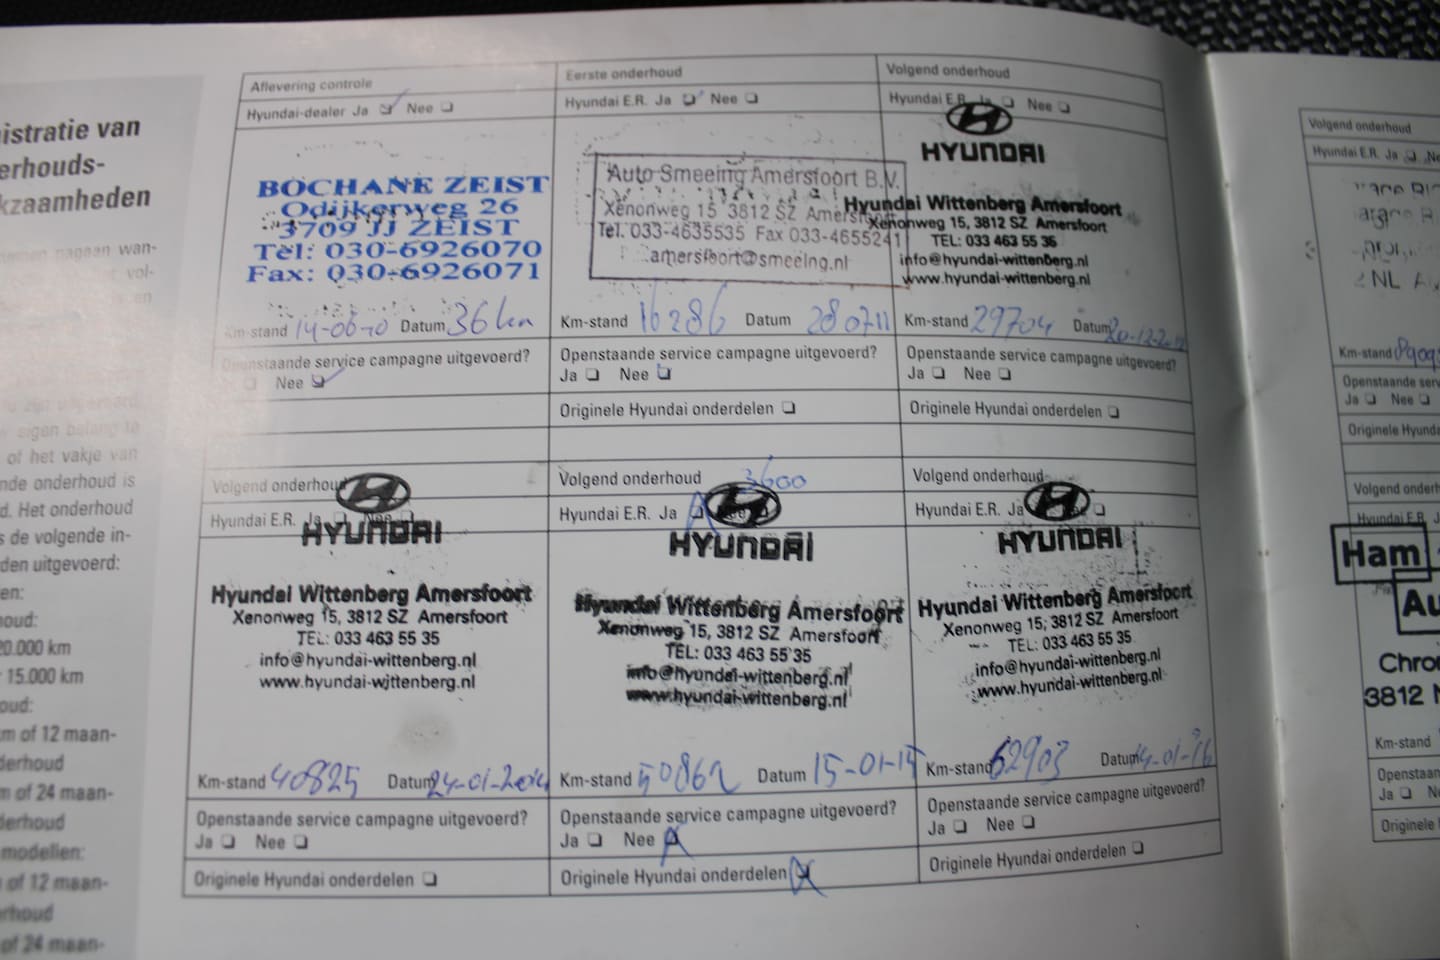 istratie van
erhouds-
kzaamheden
nagaan wan-
vol-
en
of het vakje van
nde onderhoud is
d. Het onderhoud
s de volgende in-
den uitgevoerd:
en:
houd:
20.000 km
15.000 km
oud:
m of 12 maan-
derhoud
m of 24 maan-
derhoud
modellen:
of 12 maan-
erhoud
of 24 maan-
Aflevering controle
Hyundai-dealer Ja Nee
BOCHANE ZEIST
Odijkerweg 26
3709 JJ ZEIST
Tel: 030-6926070
Fax: 030-6926071
Km-stand 14-06-10 Datum 36 km
Openstaande service campagne uitgevoerd?
Nee
Eerste onderhoud
Hyundai E.R. Ja Nee
Auto Smeeing Amersfoort B.V.
Xenonweg 15 3812 SZ Amersfoort
Tel. 033-4635535 Fax 033-4655241
amersfoort@smeeing.nl
Km-stand 16286 Datum 280711
Openstaande service campagne uitgevoerd?
Ja Nee
Originele Hyundai onderdelen
Volgend onderhoud
Hyundai E.R. Ja Nee
HYUNDAI
Hyundai Wittenberg Amersfoort
Xenonweg 15, 3812 SZ Amersfoort
TEL: 033 463 55 35
info@hyundai-wittenberg.nl
www.hyundai-wittenberg.nl
Km-stand 29704 Datum 20-12-2012
Openstaande service campagne uitgevoerd?
Ja Nee
Originele Hyundai onderdelen
Volgend onderhoud
Hyundai E.R. Ja Nee
HYUNDAI
Hyundai Wittenberg Amersfoort
Xenonweg 15, 3812 SZ Amersfoort
TEL: 033 463 55 35
info@hyundai-wittenberg.nl
www.hyundai-wittenberg.nl
Km-stand 40825 Datum 24-01-2014
Openstaande service campagne uitgevoerd?
Ja Nee
Originele Hyundai onderdelen
Volgend onderhoud 3600
Hyundai E.R. Ja Nee
HYUNDAI
Hyundai Wittenberg Amersfoort
Xenonweg 15, 3812 SZ Amersfoort
TEL: 033 463 55 35
info@hyundai-wittenberg.nl
www.hyundai-wittenberg.nl
Km-stand 50862 Datum 15-01-15
Openstaande service campagne uitgevoerd?
Ja Nee
Originele Hyundai onderdelen
Volgend onderhoud
Hyundai E.R. Ja Nee
HYUNDAI
Hyundai Wittenberg Amersfoort
Xenonweg 15, 3812 SZ Amersfoort
TEL: 033 463 55 35
info@hyundai-wittenberg.nl
www.hyundai-wittenberg.nl
Km-stand 62903 Datum 14-01-16
Openstaande service campagne uitgevoerd?
Ja Nee
Originele Hyundai onderdelen
Volgend onderhoud
Hyundai E.R. Ja Ne
Km-stand
Openstaande serv
Ja Nee
Originele Hyunda
Volgend onderh
Hyundai E.R. J
Ham
Au
Chro
3812 N
Km-stand
Openstaan
Ja Ne
Originele